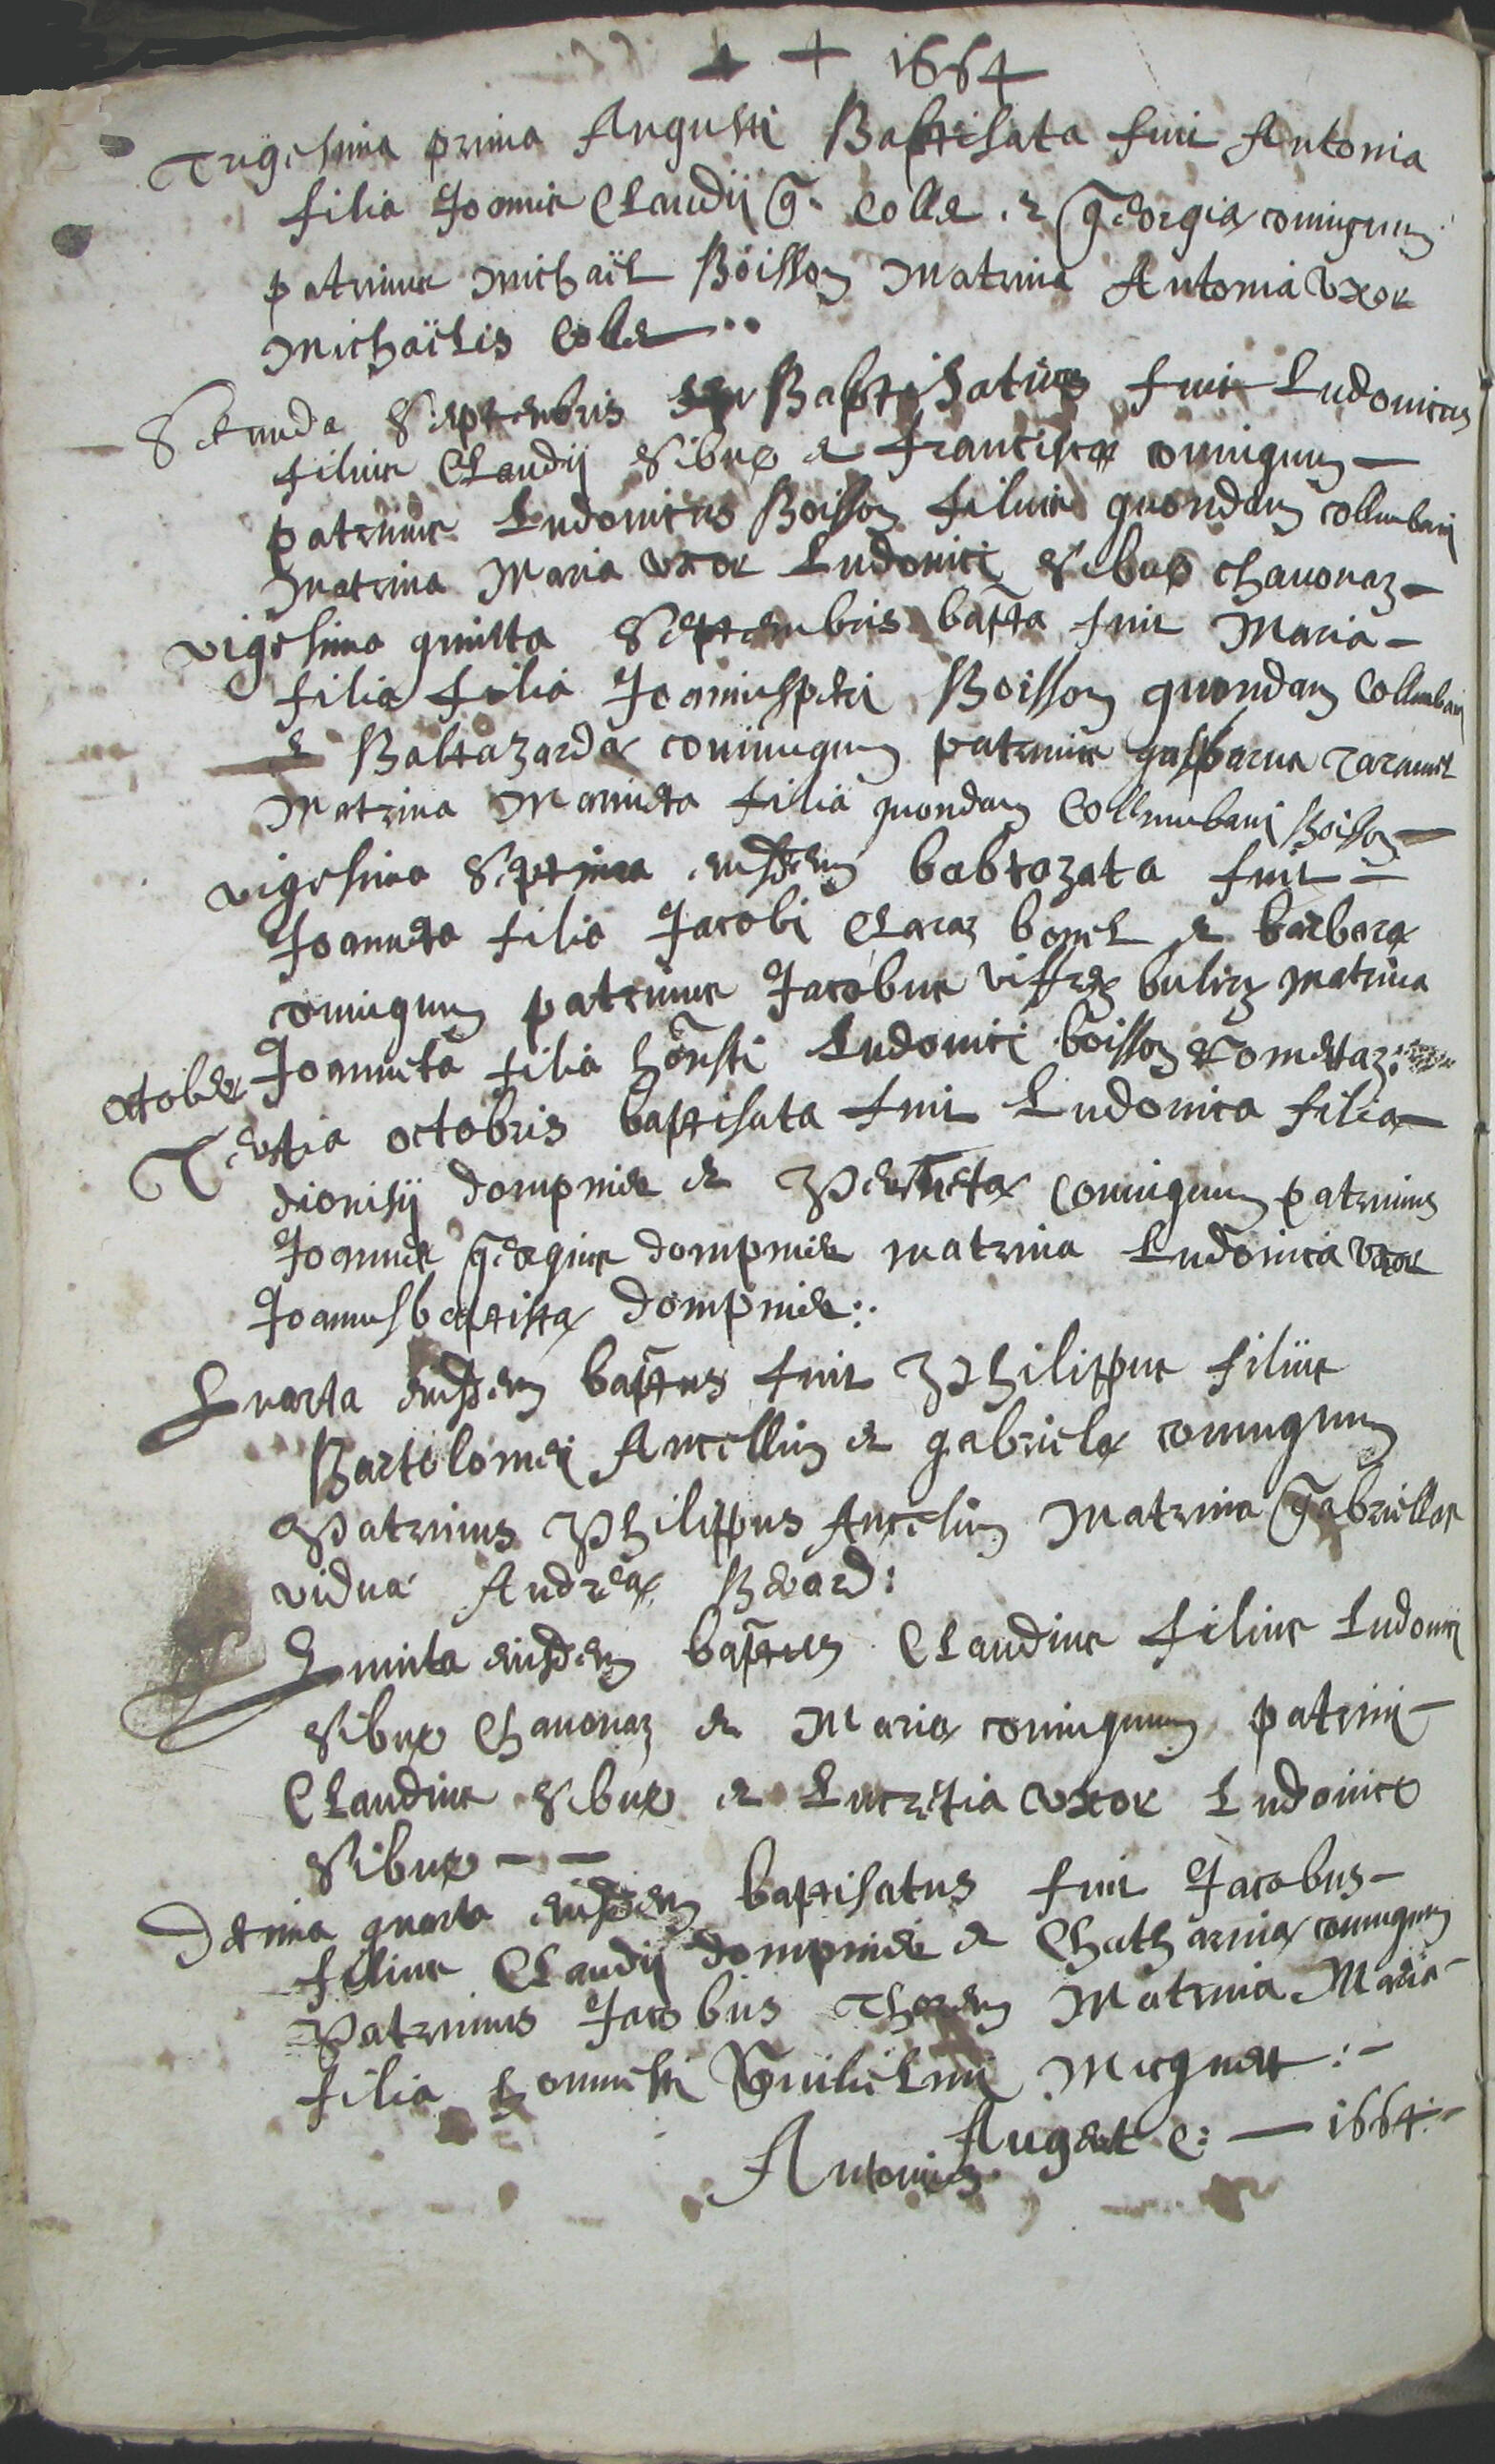 + + 1664
Trigesima prima Augusti Baptisata fuit Antonia
filia Joannis Claudij G. Colle & Georgiæ coniugum
patrinus Michaël Boisson Matrina Antonia uxor
Michaëlis Colle
Secunda Septembris Baptisatus fuit Ludovicus
filius Claudij Sibux & franciscæ coniugum
patrinus Ludovicus Boisson filius quondam Collumbani
Matrina Maria uxor Ludovici Sibux Chavonaz
vigesima quinta Septembris bapta fuit Maria
filia filia Joannispetri Boisson quondam Collumbani
& Baltazardæ coniugum patrinus gasparus
Matrina Mauricta filia quondam Collumbani Boisson
vigesima septima eiusdem babtazata fuit
Joanneta filia Jacobi Claraz bonel & barbaræ
coniugum patrinus Jacobus viffrey Matrina
Joanneta filia honesti Ludovici boisson
october
Tertia octobris baptisata fuit Ludovica filia
dionisij dompnier & Pernetæ coniugum patrinus
Joannes Georgius dompnier matrina Ludovica uxor
Joannisbaptistæ dompnier:
Quarta eiusdem baptus fuit Philippus filius
Bartolomei Ancellin & gabrielæ coniugum
Patrinus Philippus Ancelin Matrina Gabriella
vidua Andreæ Berard:
Quinta eiusdem baptus Claudius filius Ludovici
Sibux Chavonaz & Mariæ coniugum patrini
Claudius Sibux & Lucretia uxor Ludovici
Sibux
Decima quarta eiusdem baptisatus fuit Jacobus
filius Claudij dompnier & Chatharinæ coniugum
Patrinus Jacobus Matrina Maria
filia honnesti Guilielmi
Antonius Auget c: 1664